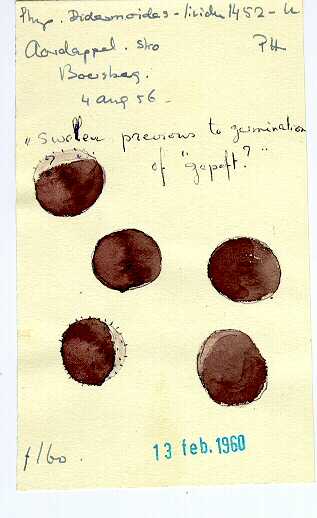 Phys. Didesmoides - livida 1452 - u
Aardappel. stro PH
Boersberg.
4 aug 56 -
"Swollen previous to germination
of "gepoft?"
f/60.
13 feb. 1960